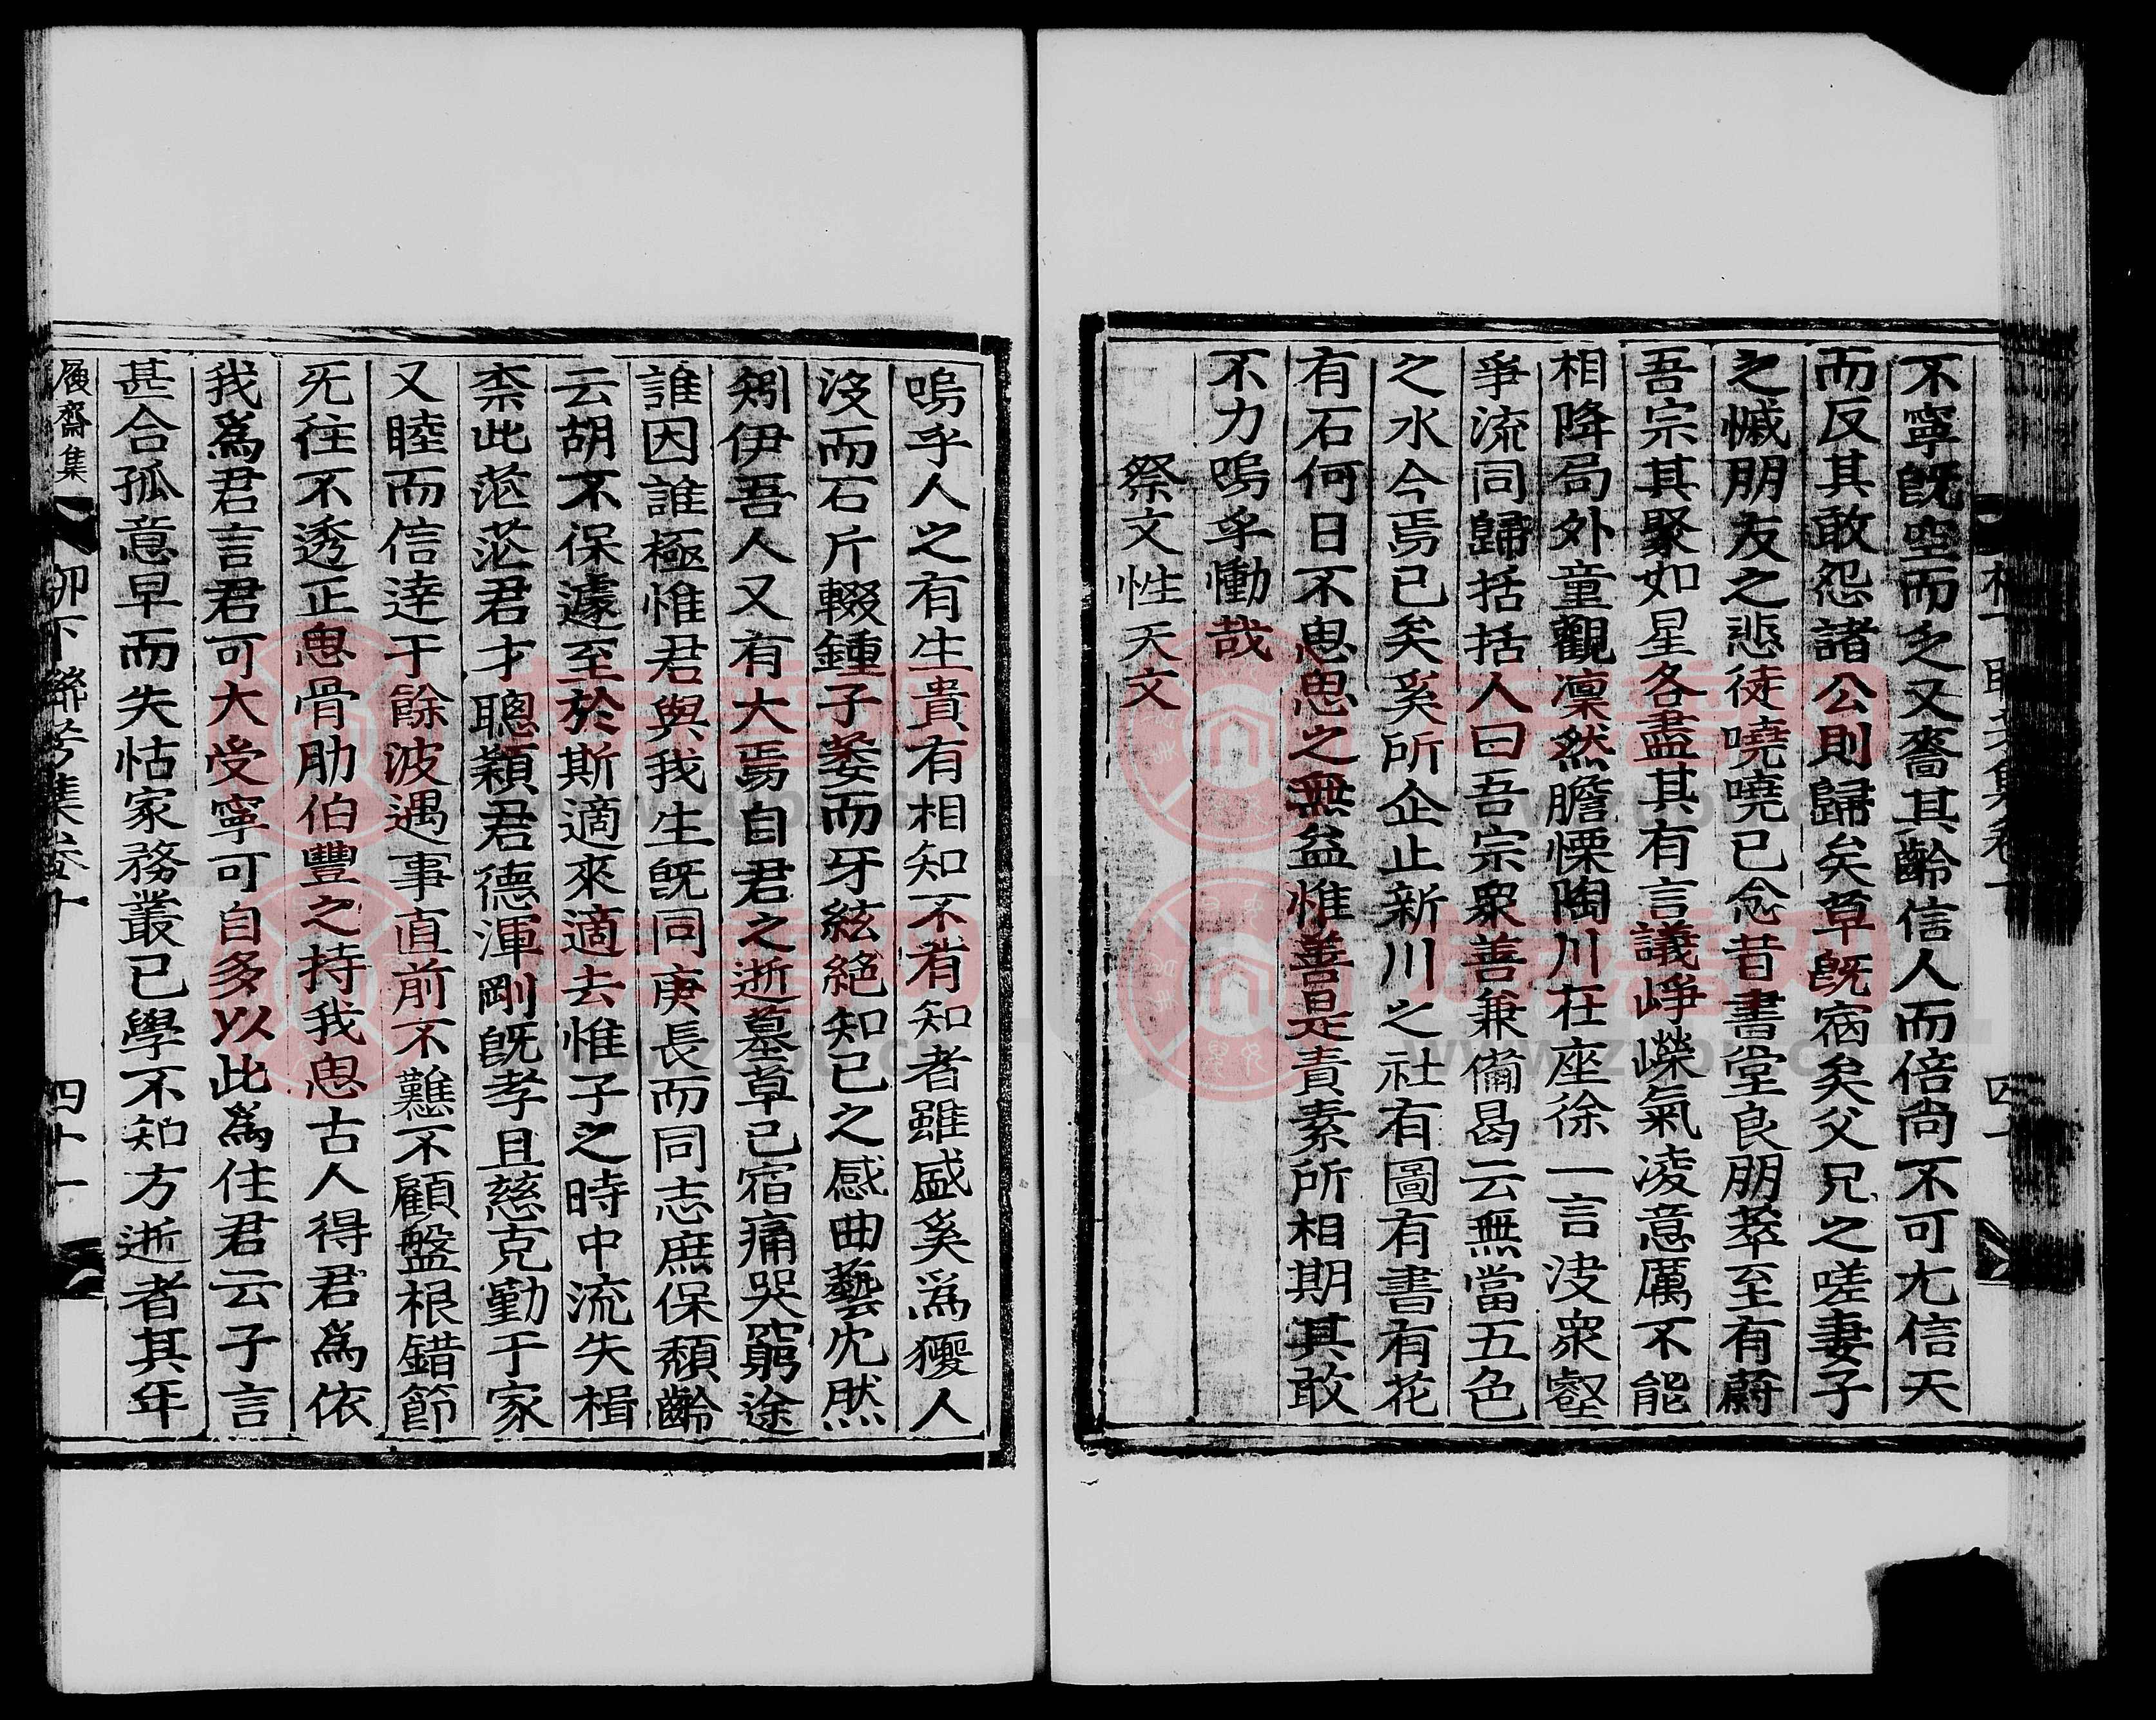 不寧既空而乏又嗇其齡信人而倍尚不可尤信天
而反其敢怨諸公則歸矣草既宿矣父兄之嗟妻子
之慽朋友之悲徒嘵嘵已念昔書堂良朋萃至有蔚
吾宗其聚如星各盡其有言議崢嶸氣凌意厲不能
相降局外童觀凜然膽慄陶川在座徐一言決衆壑
爭流同歸括括人曰吾宗衆善兼備曷云無當五色
之水今焉已矣奚所企止新川之社有圖有書有花
有石何日不思思之無益惟善是責素所相期其敢
不力嗚乎慟哉
祭文性天文
嗚乎人之有生貴有相知不有知者雖盛奚爲獿人
沒而石斤輟鍾子萎而牙絃絕知己之感曲藝尤然
矧伊吾人又有大焉自君之逝墓草已宿痛哭窮途
誰因誰極惟君與我生既同庚長而同志庶保頹齡
云胡不保遽至於斯適來適去惟子之時中流失楫
柰此茫茫君才聰穎君德渾剛既孝且慈克勤于家
又睦而信達于餘波遇事直前不難不顧盤根錯節
旡往不透正思骨肋伯豐之持我思古人得君爲依
我爲君言君可大受寧可自多以此爲住君云子言
甚合孤意早而失怙家務叢已學不知方逝者其年
履齋集
柳下聯芳集卷十
四十一